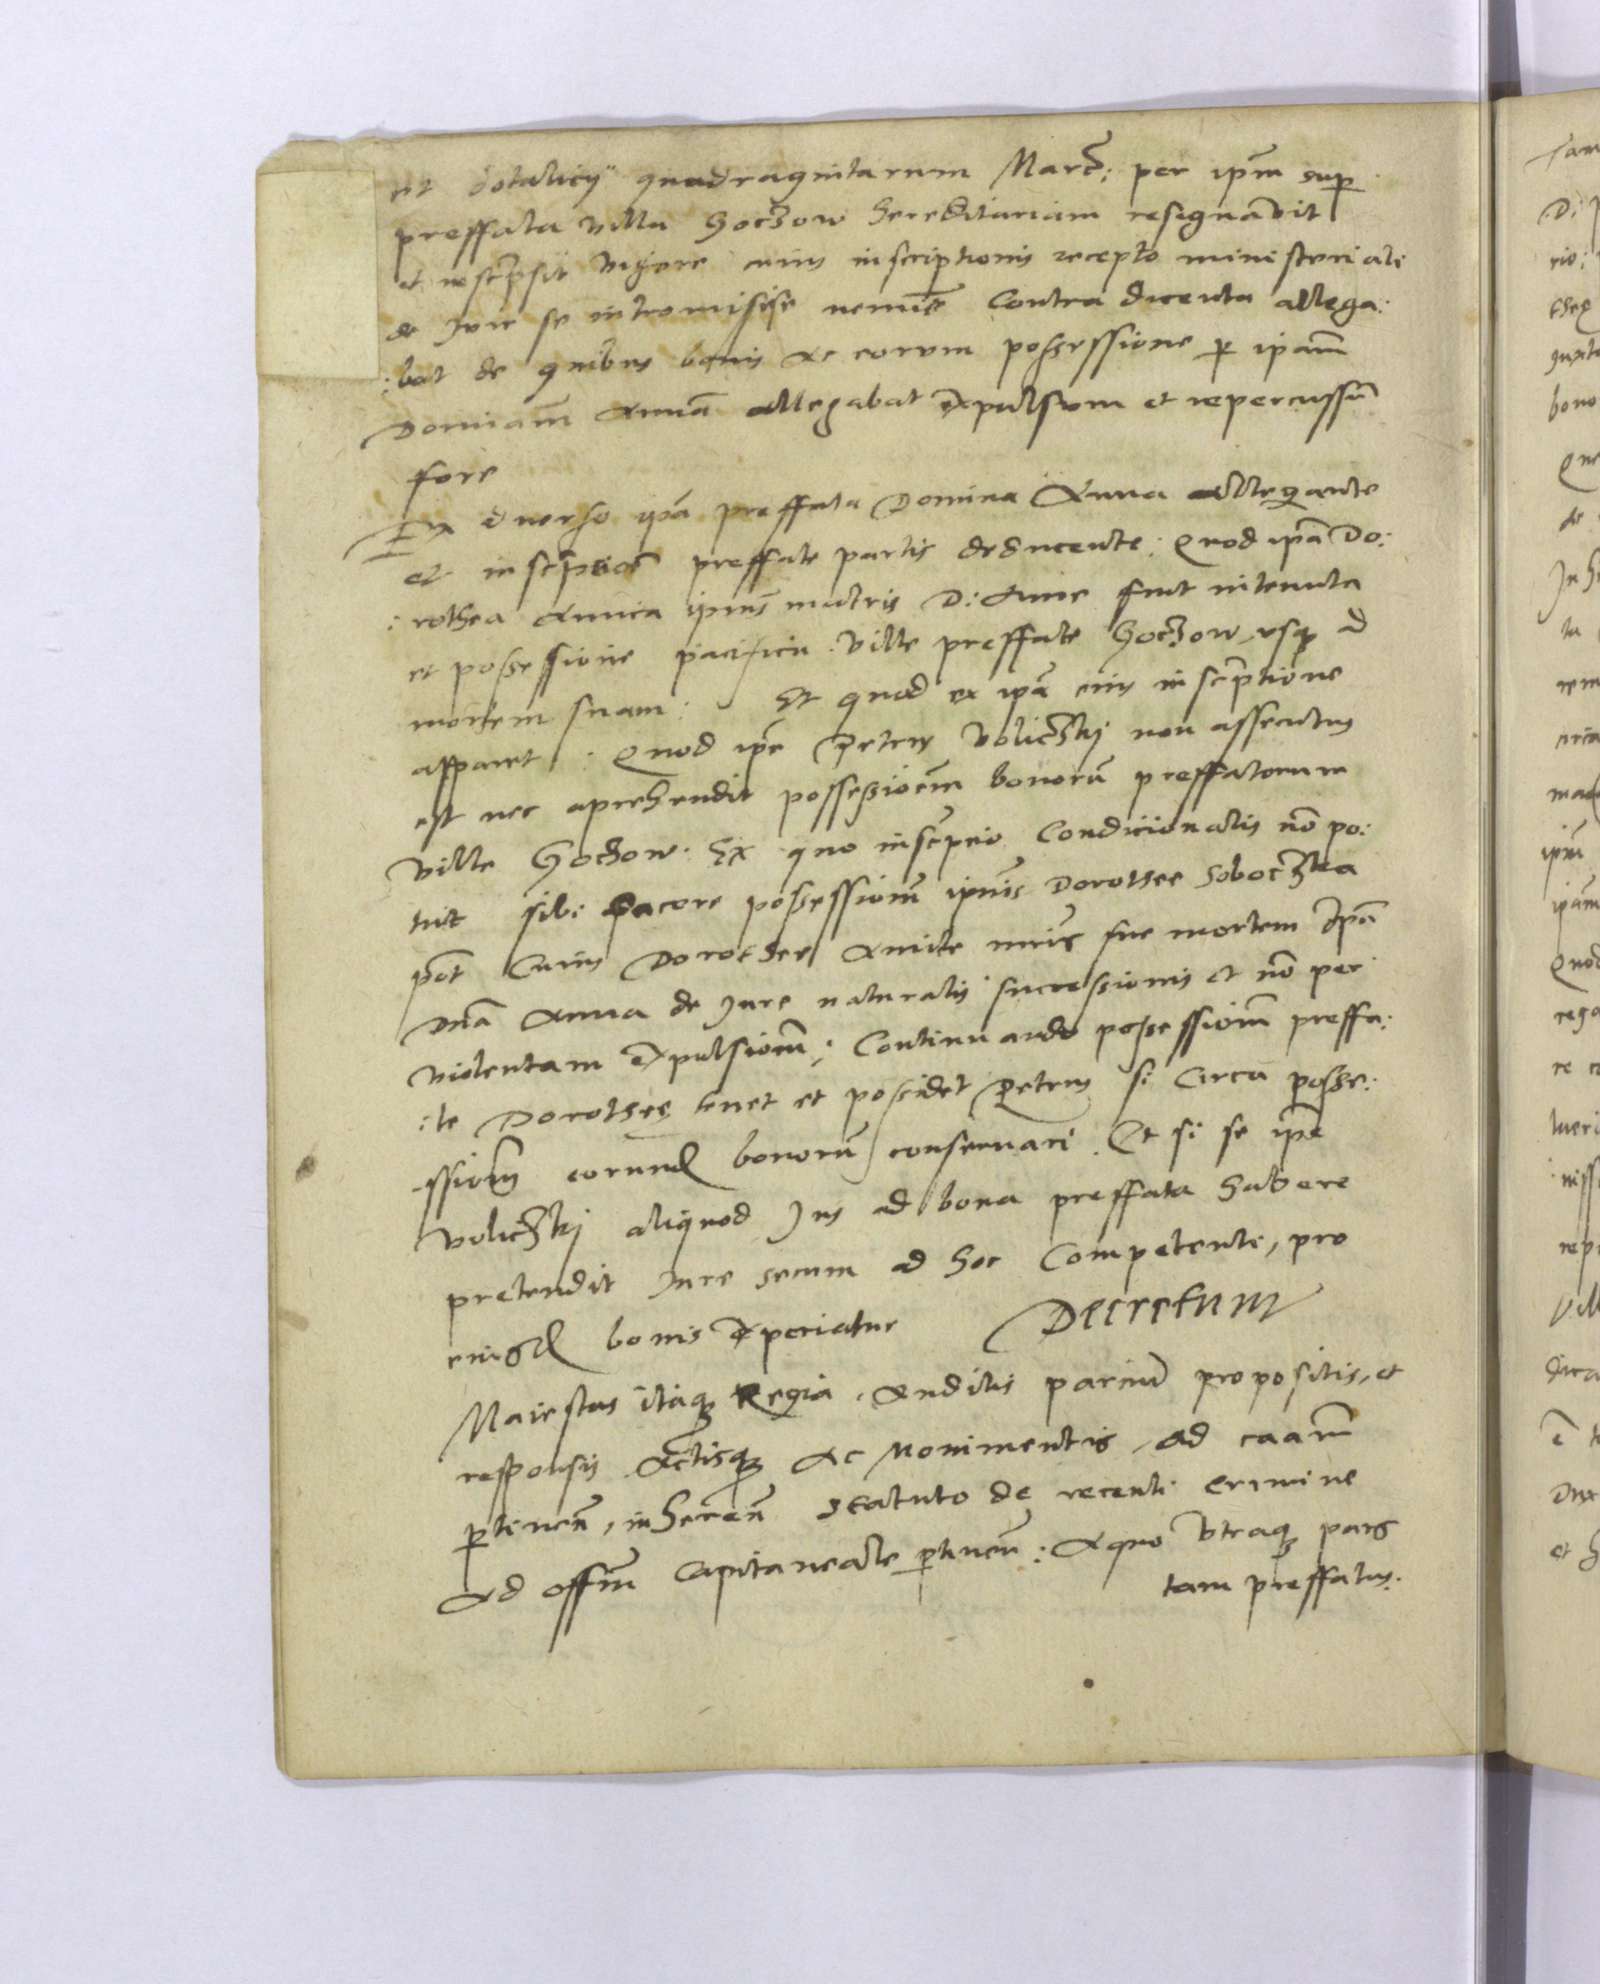 et dotalicij quadragintarum Marc: per ipm sup
preffata villa Goczow hereditariam resignavit
et inscripsit vigore cuius inscriptionis recepto ministeriali
de Iure se intromisisse nemine Contra dicenta allega:
:bat de quibus bonis ac eorum possessione p ipam
Dominam Anna allegabat Expulsum et repercussu
fore
Ex adverso ipa preffata Domina Anna allegante
et inscpcioe preffate partis deducente: Quod ipa Do:
:rothea Amita ipius matris D: Anne fuit in tenuta
et possessione pacifica ville preffate Goczow, usq ad
mortem suam: Et quod ex ipa eius inscriptione
apparet: Quod ipe Petrus Voliczkj non assecutus
est nec aprehendit possessioem bonoru preffatorum
ville Goczow. Ex quo inscripcio Condicionalis no po:
tuit sibi facere possessionem ipius Dorothee Soboczka
post Cuius Dorothee Amite mris sue mortem Ipa
Dna Anna de Iure naturalis successionis et no per
violentam Expulsionem: Continuando possessionem preffa:
:te Dorothee tenet et possidet petens si Circa posse:
ssionem eorund bonoru conservari. Et si se ipe
Voliczkj aliquod Ius ad bona preffata habere
pretendit Iure secum ad hoc Competente, pro
eiusd bonis Experiatur Decretum
Maiestas itaq Regia. Auditis parcium propositis, et
responsis Actisq Ac Monimentis, ad caam
ptinen, inheren statuto de recenti Crimine
Ad officm Capitaneale ptinen: A quo Vtraq pars
tam preffatus.